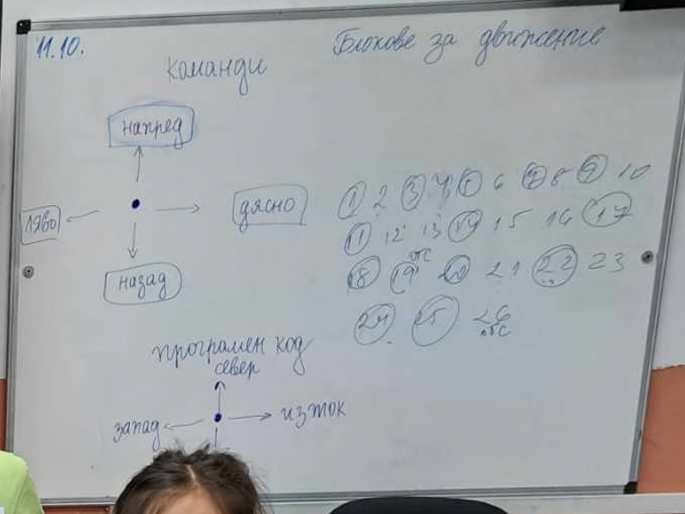 11.10.
Блокове за движение
команди
напред
ляво
дясно
назад
1 2 3 4 5 6 7 8 9 10
11 12 13 14 15 16 17
18 19 20 21 22 23
отс
24 25 26
отс
програмен код
север
запад
изток